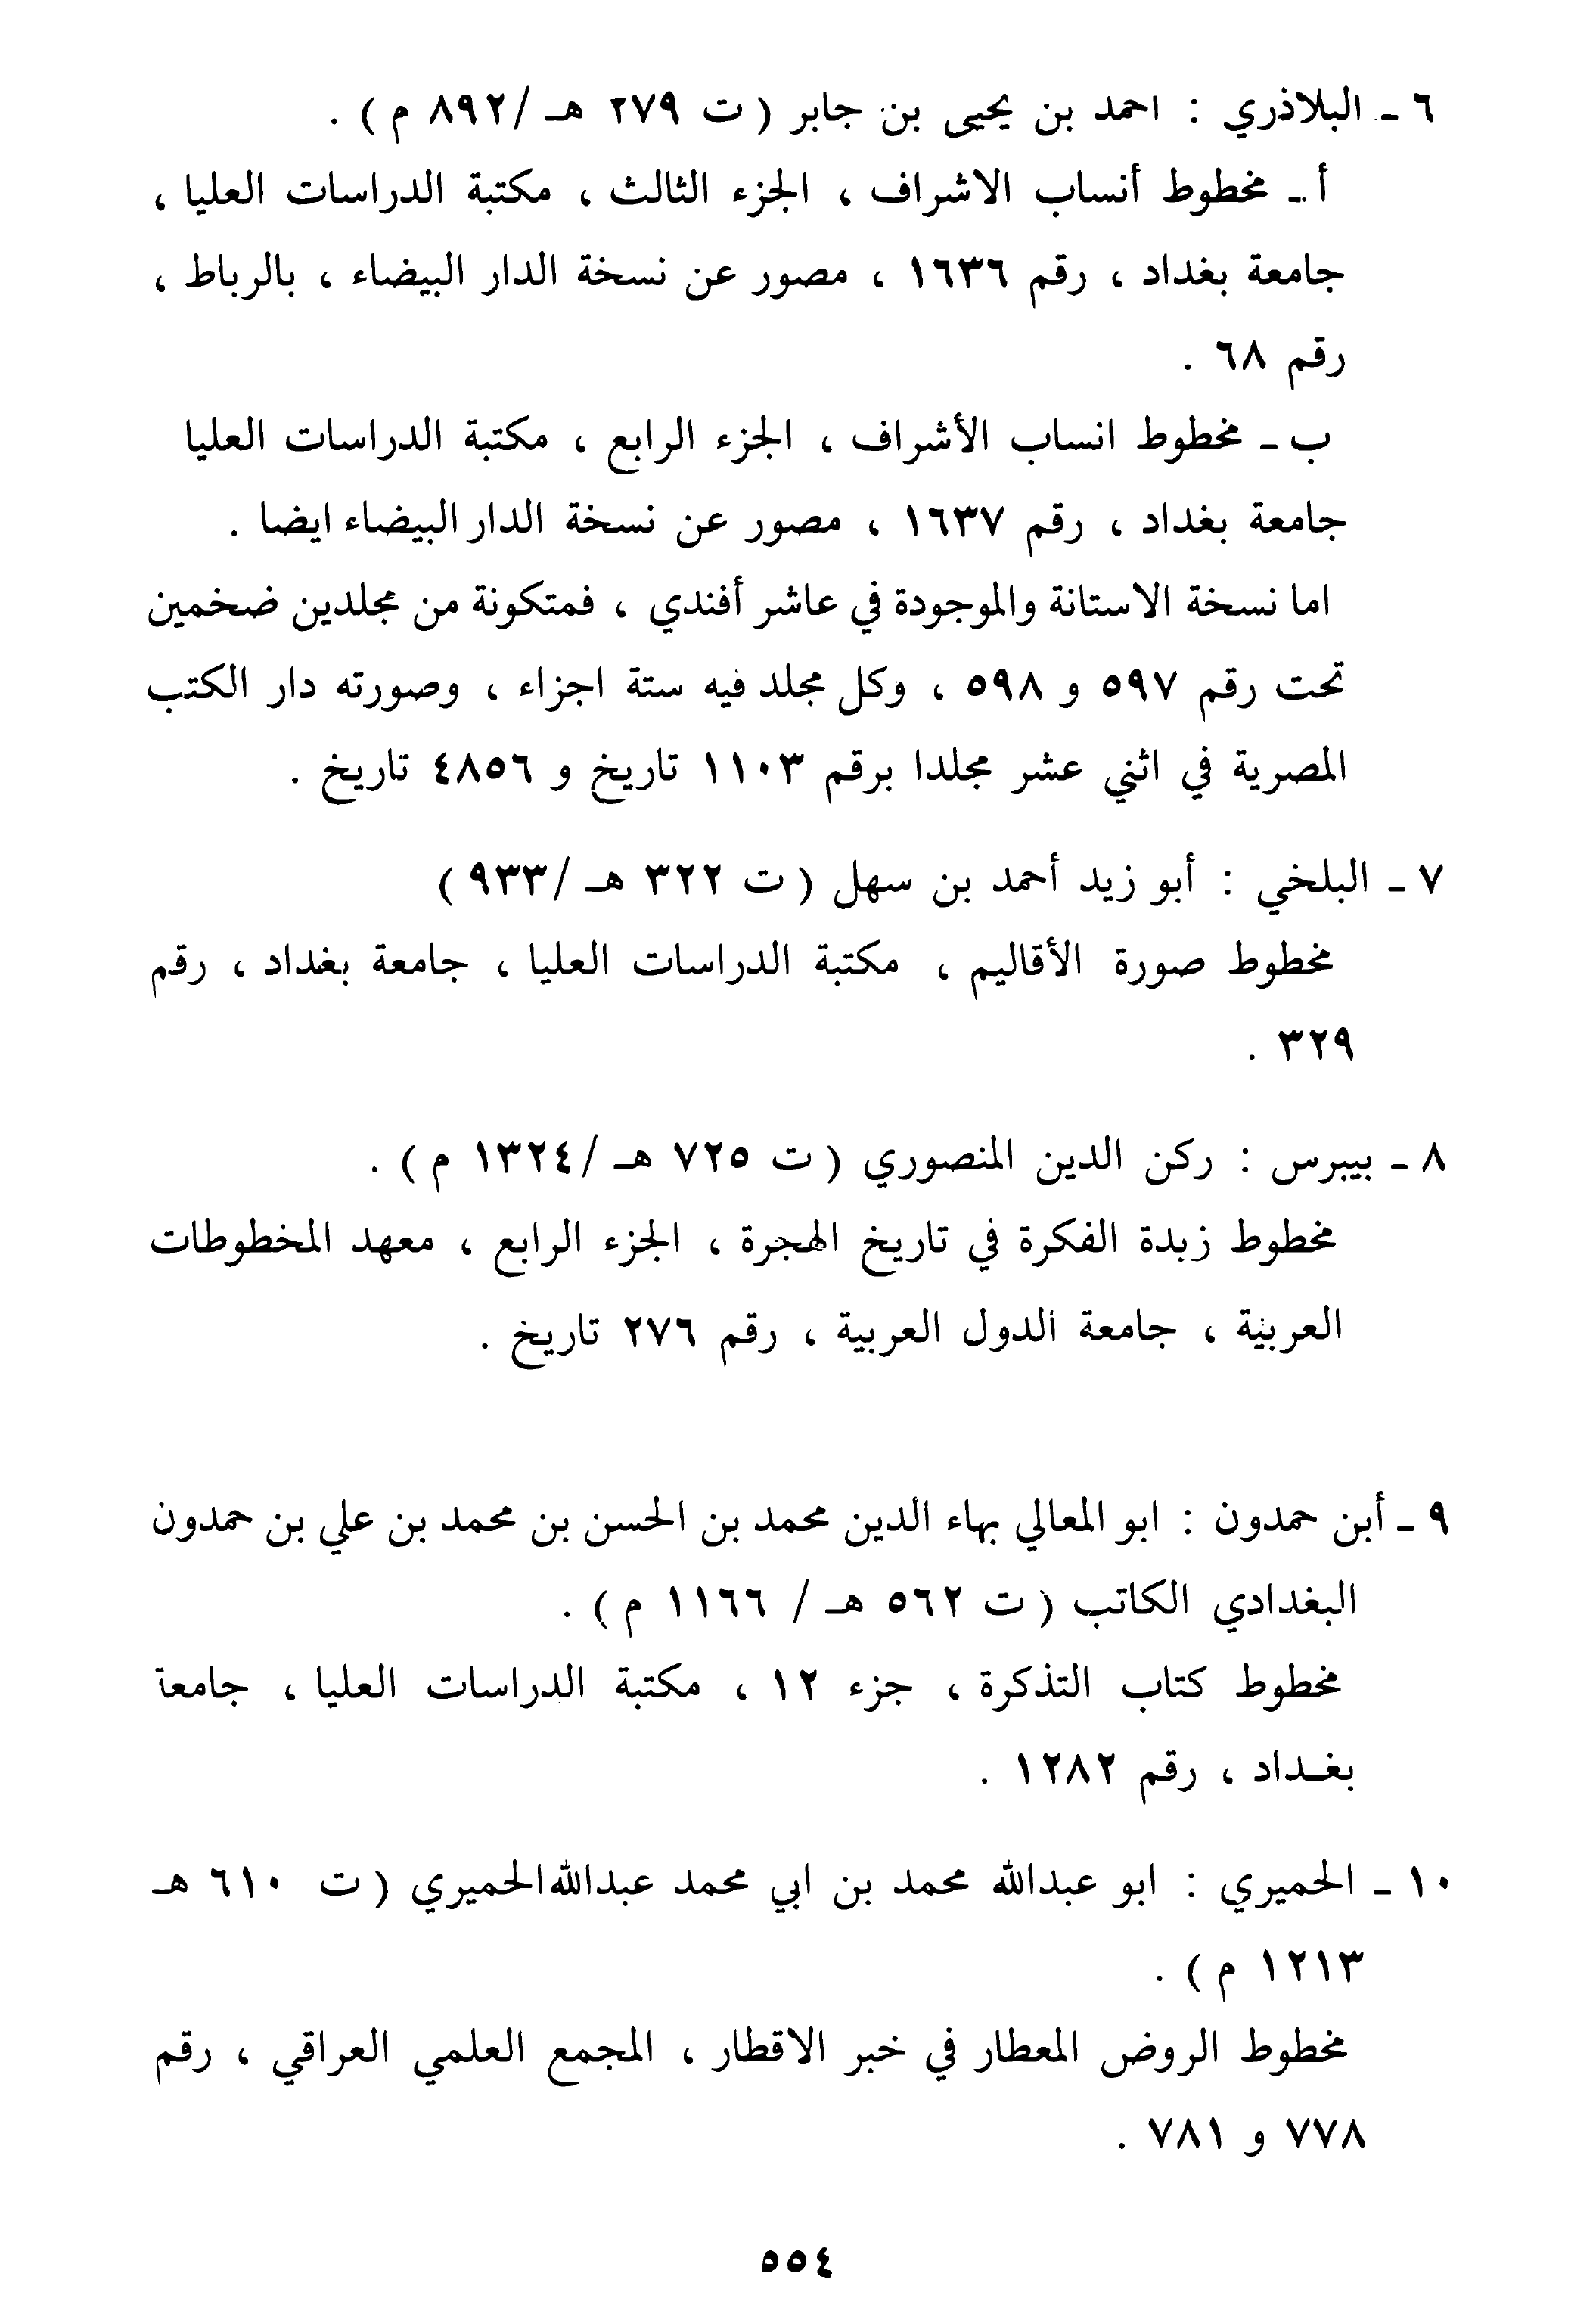 ٦ - البلاذري : احمد بن يحيى بن جابر ( ت ٢٧٩ هـ /٨٩٢ م ) .
أ - مخطوط أنساب الاشراف ، الجزء الثالث ، مكتبة الدراسات العليا ،
جامعة بغداد ، رقم ١٦٣٦ ، مصور عن نسخة الدار البيضاء ، بالرباط ،
رقم ٦٨ .
ب - مخطوط انساب الأشراف ، الجزء الرابع ، مكتبة الدراسات العليا
جامعة بغداد ، رقم ١٦٣٧ ، مصور عن نسخة الدار البيضاء ايضا .
اما نسخة الاستانة والموجودة في عاشر أفندي ، فمتكونة من مجلدين ضخمين
تحت رقم ٥٩٧ و ٥٩٨ ، وكل مجلد فيه ستة اجزاء ، وصورته دار الكتب
المصرية في اثني عشر مجلدا برقم ١١٠٣ تاريخ و ٤٨٥٦ تاريخ .
٧ - البلخي : أبو زيد أحمد بن سهل ( ت ٣٢٢ هـ /٩٣٣ )
مخطوط صورة الأقاليم ، مكتبة الدراسات العليا ، جامعة بغداد ، رقم
٣٢٩ .
٨ - بيبرس : ركن الدين المنصوري ( ت ٧٢٥ هـ /١٣٢٤ م ) .
مخطوط زبدة الفكرة في تاريخ الهجرة ، الجزء الرابع ، معهد المخطوطات
العربية ، جامعة الدول العربية ، رقم ٢٧٦ تاريخ .
٩ - أبن حمدون : ابو المعالي بهاء الدين محمد بن الحسن بن محمد بن علي بن حمدون
البغدادي الكاتب ( ت ٥٦٢ هـ / ١١٦٦ م ) .
مخطوط كتاب التذكرة ، جزء ١٢ ، مكتبة الدراسات العليا ، جامعة
بغـداد ، رقم ١٢٨٢ .
١٠ - الحميري : ابو عبدالله محمد بن ابي محمد عبدالله الحميري ( ت ٦١٠ هـ
١٢١٣ م ) .
مخطوط الروض المعطار في خبر الاقطار ، المجمع العلمي العراقي ، رقم
٧٧٨ و ٧٨١ .
٥٥٤